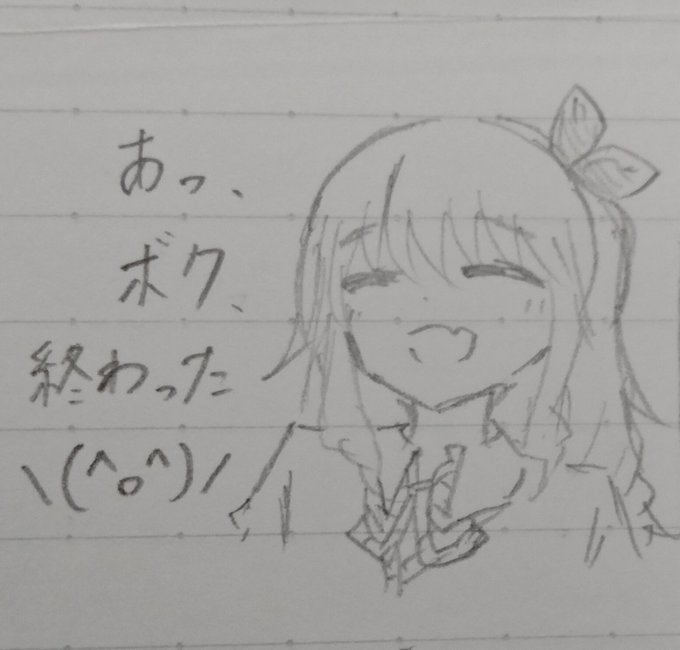 あっ、
ボク、
終わった
\(^o^)/